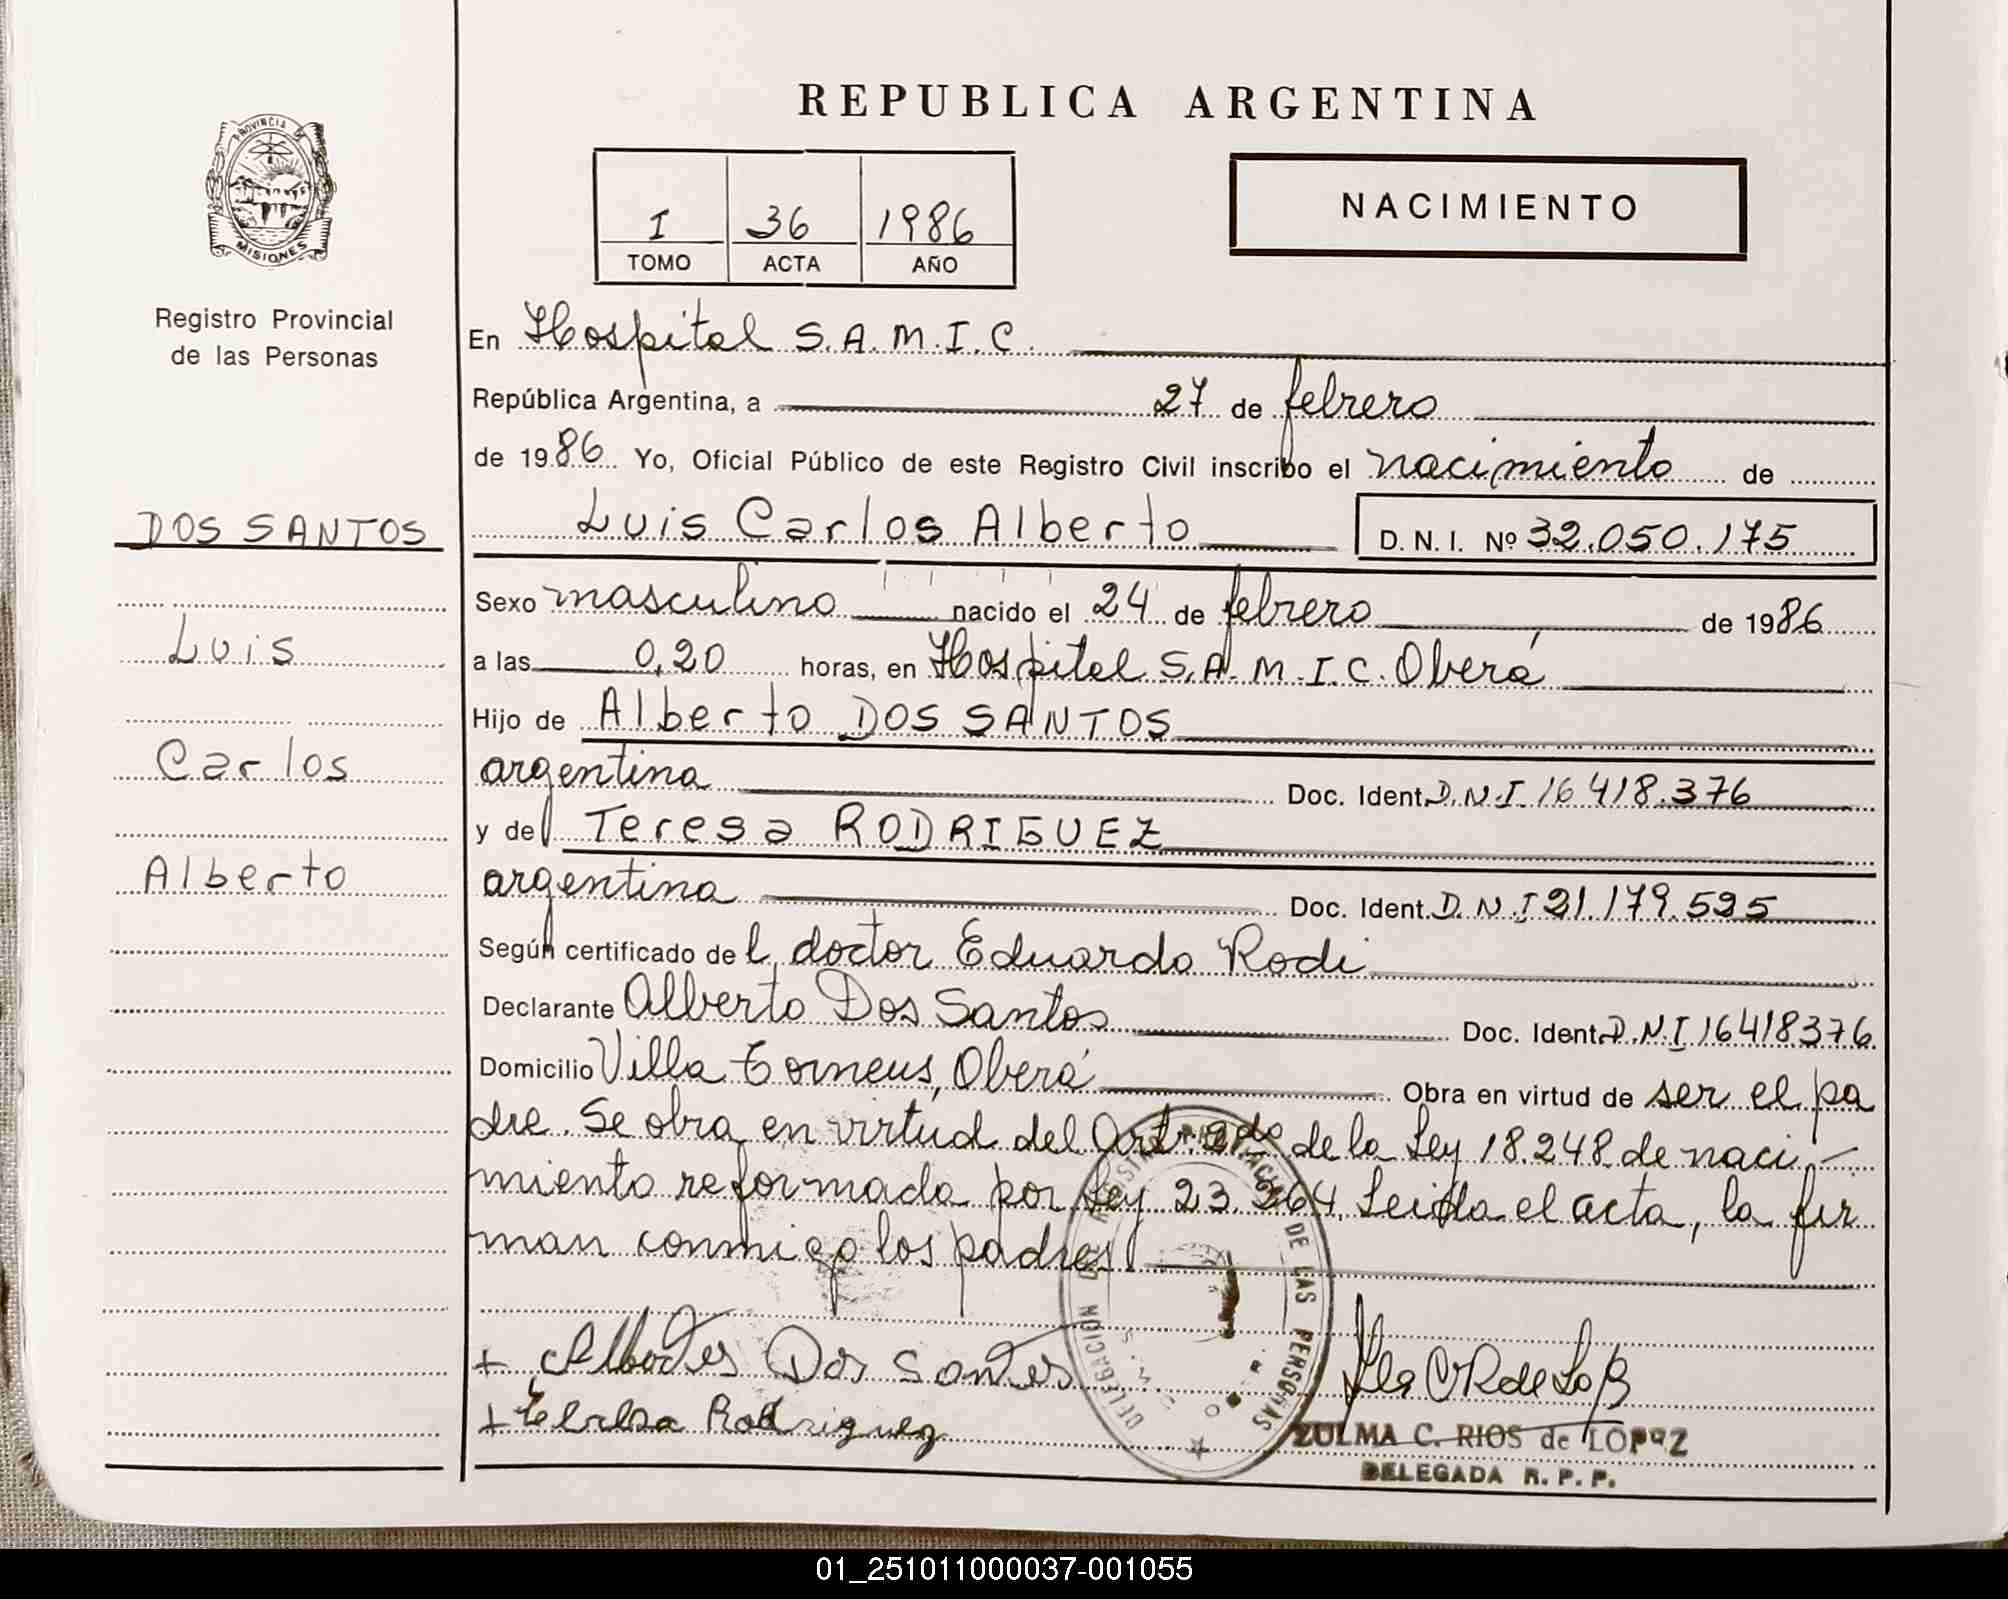 REPUBLICA ARGENTINA
PROVINCIA DE
MISIONES
Registro Provincial
de las Personas
I 36 1986
TOMO ACTA AÑO
NACIMIENTO
En Hospital S.A.M.I.C.
República Argentina, a 27 de febrero
de 1986 Yo, Oficial Público de este Registro Civil inscribo el nacimiento de
DOS SANTOS
Luis Carlos Alberto D. N. I. Nº 32.050.175
Sexo masculino nacido el 24 de febrero de 1986
Luis
a las 0,20 horas, en Hospital S.A.M.I.C. Oberá
Hijo de Alberto DOS SANTOS
Carlos
argentina Doc. Ident. D.N.I. 16 418.376
y de Teresa RODRIGUEZ
Alberto
argentina Doc. Ident. D.N.I 21.179.525
Según certificado del doctor Eduardo Rodi
Declarante Alberto Dos Santos Doc. Ident. D.N.I 16418376
Domicilio Villa Oberá Obra en virtud de ser el pa
dre. Se obra en virtud del Art. 2do de la Ley 18.248 de naci-
miento reformada por Ley 23.264. Leida el acta, la fir
man conmigo los padres
+ Dos Santos
+ Teresa Rodriguez
DELEGACION DE LAS PERSONAS
ZULMA C. RIOS de LOPEZ
DELEGADA R. P. P.
01_251011000037-001055